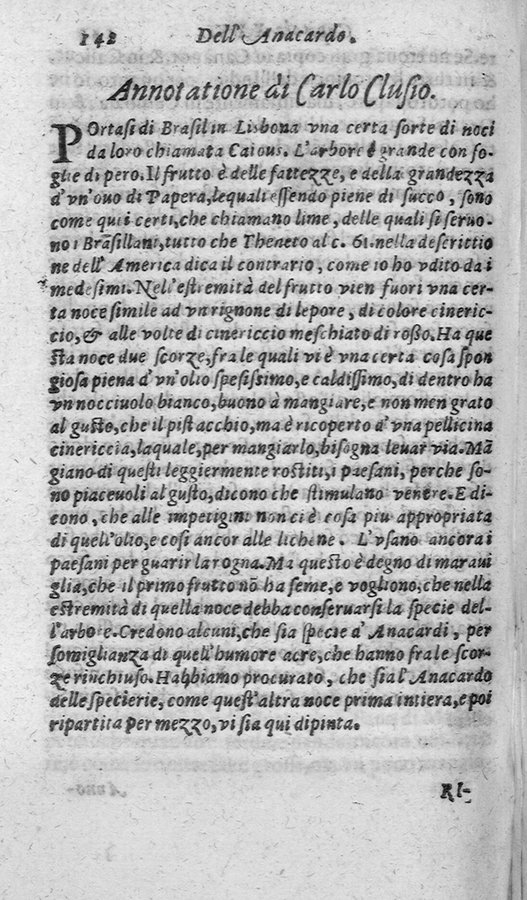 142 Dell' Anacardo.
Annotatione di Carlo Clusio.
POrtasi di Brasil in Lisbona vna certa sorte di noci
da loro chiamata Caious. L'arbore è grande con fo-
glie di pero. Il frutto è delle fattezze, e della grandezza
d'vn'ouo di Papera, lequali essendo piene di succo, sono
come quei certi, che chiamano lime, delle quali si seruo-
no i Brasilla ni, tutto che Theueto al c. 61. nella descrittio
ne dell' America dica il contrario, come io ho vdito da i
medesimi. Nell'estremità del frutto vien fuori vna cer-
ta noce simile ad vn rignone di lepore, di colore cineric-
cio, & alle volte di cinericcio meschiato di roßo. Ha que
sta noce due scorze, fra le quali vi è vna certa cosa spon
giosa piena d'vn'olio spesissimo, e caldissimo, di dentro ha
vn nocciuolo bianco, buono à mangiare, e non men grato
al gusto, che il pistacchio, ma è ricoperto d'vna pellicina
cinericcia, laquale, per mangiarlo, bisogna leuar via. Mã
giano di questi leggiermente rostiti, i paesani, perche so-
no piaceuoli al gusto, dicono che stimulano venere. E di-
cono, che alle impetigini non ci è cosa piu appropriata
di quell'olio, e cosi ancor alle lichene. L'vsano ancora i
paesani per guarir la rogna. Ma questo è degno di maraui
glia, che il primo frutto nõ ha seme, e vogliono, che nella
estremità di quella noce debba conseruarsi la specie del-
l'arbore. Credono alcuni, che sia specie d'Anacardi, per
somiglianza di quell'humore acre, che hanno fra le scor-
ze rinchiuso. Habbiamo procurato, che sia l'Anacardo
delle specierie, come quest'altra noce prima intiera, e poi
ripartita per mezzo, vi sia qui dipinta.
RI-